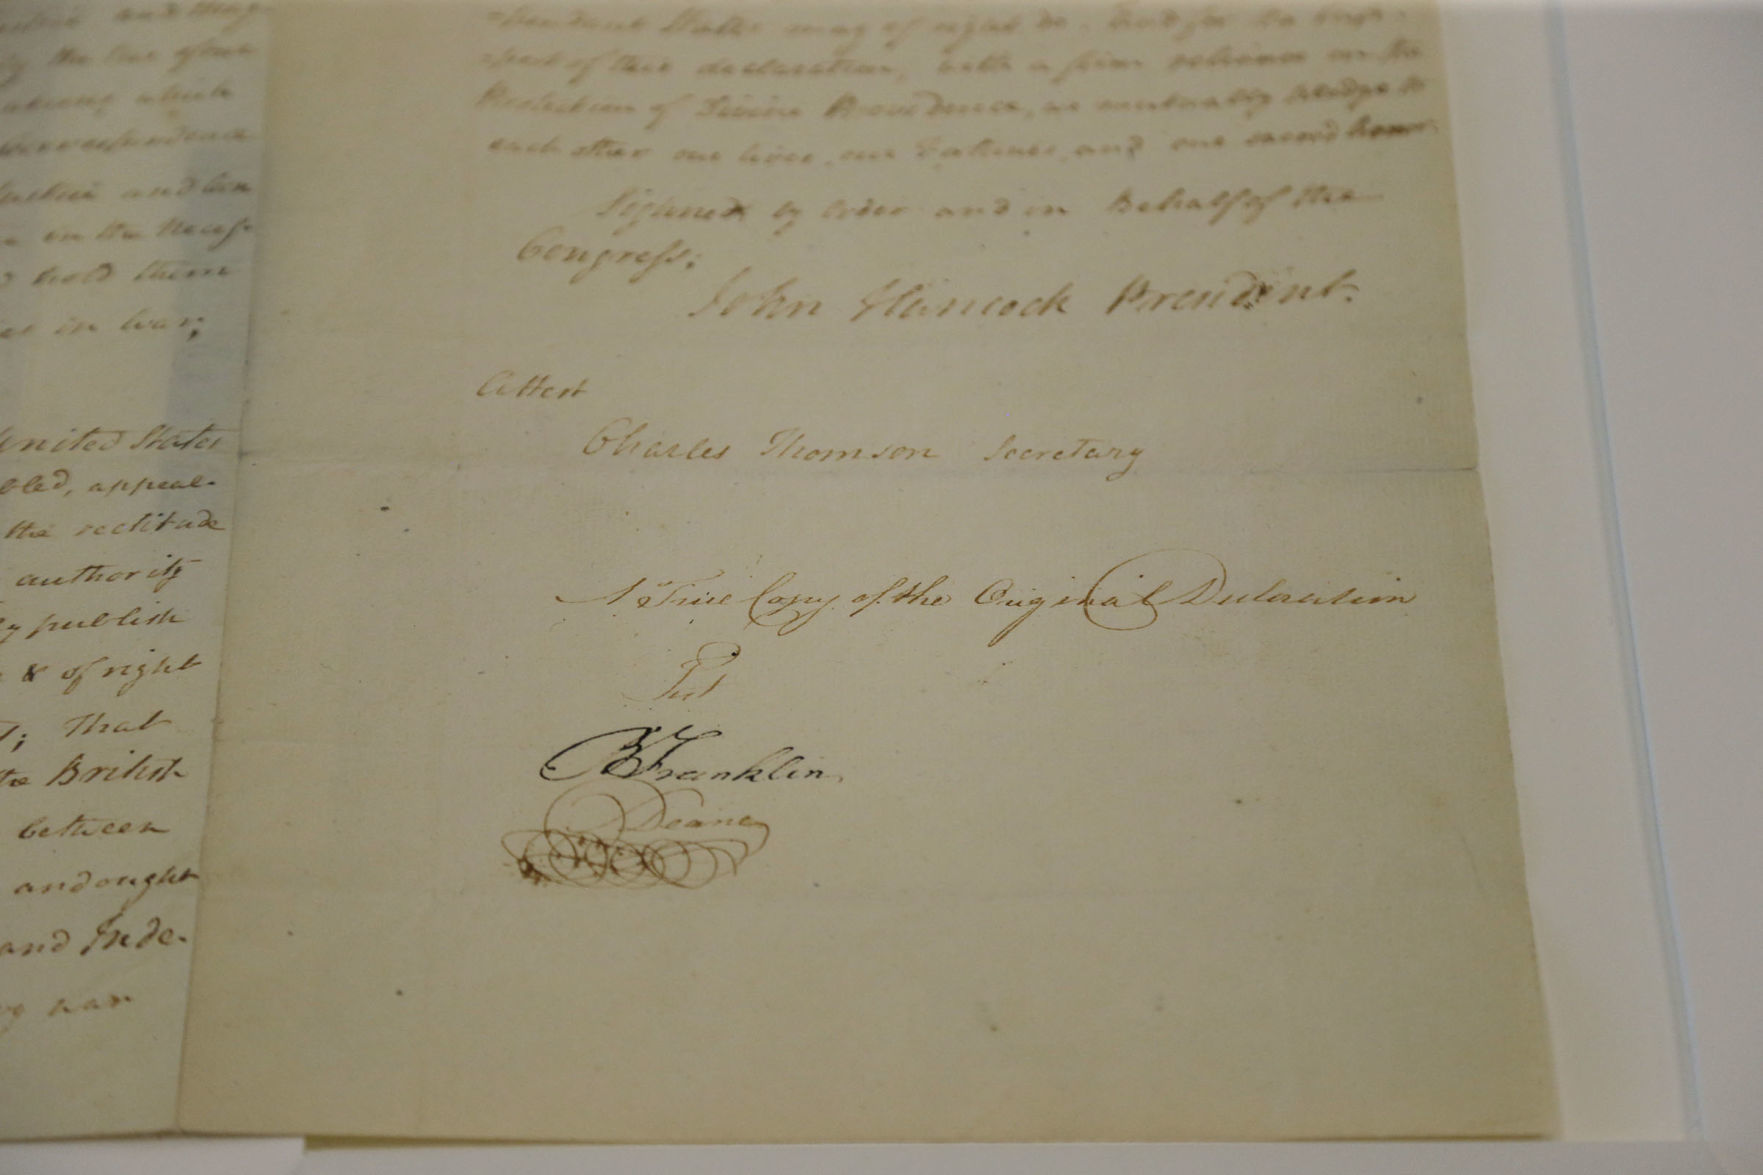 and
by the
which
correspondence
justice and con
e in the necess-
hold them
in war;
United States
bled, appeal-
the rectitude
authority
y publish
& of right
; That
the British
between
and ought
and Inde-
war
-pendant States may of right do. And for the sup-
-port of this declaration, with a firm reliance on the
Protection of Divine Providence, we mutually pledge to
each other our lives, our Fortunes, and our sacred honor
Signed by order and in Behalf of the
Congress;
John Hancock President.
Attest
Charles Thomson Secretary
A True Copy of the Original Declaration
Test
B Franklin
S Deane